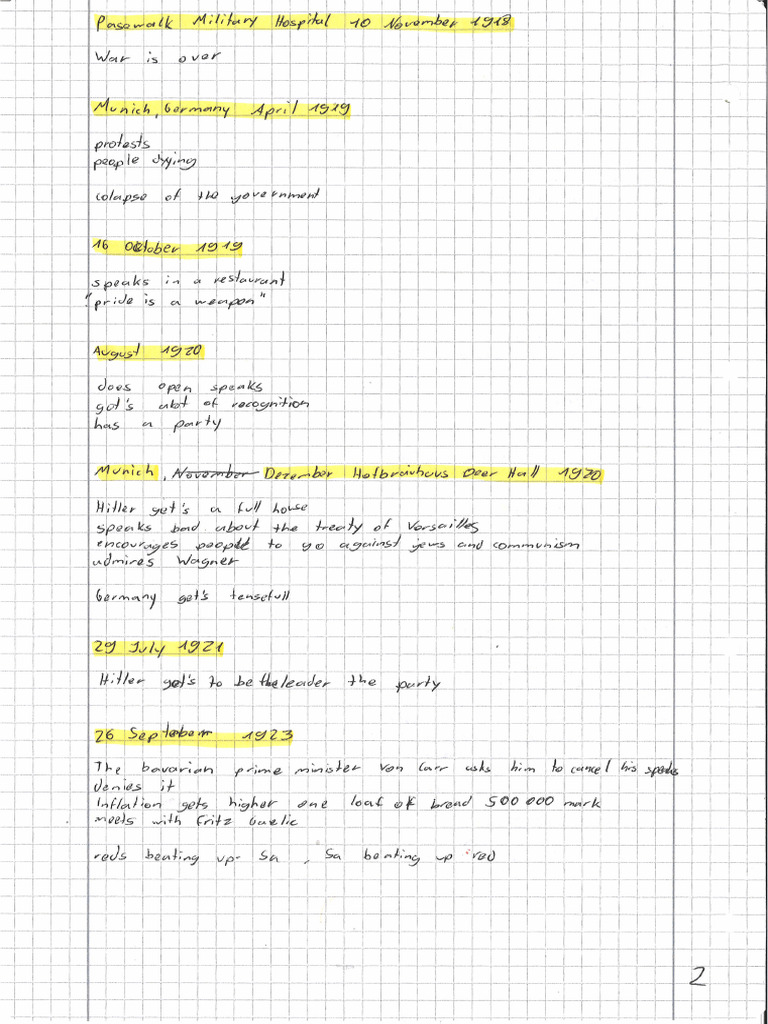 Pasewalk Military Hospital 10 November 1918
War is over
Munich, Germany April 1919
protests
people dying
colapse of the government
16 October 1919
speaks in a restaurant
"pride is a weapon"
August 1920
does open speaks
got's alot of recognition
has a party
Munich, November Dezember Hofbräuhaus Beer Hall 1920
Hitler get's a full house
speaks bad about the treaty of Versailles
encourages people to go against jews and communism
admires Wagner
Germany get's tensefull
29 July 1921
Hitler get's to be the leader the party
26 September 1923
The bavarian prime minister Von Carr asks him to cancel his
denies it
Inflation gets higher one loaf of bread 500 000 mark
meets with Fritz
reds beating up Sa, Sa beating up red
2